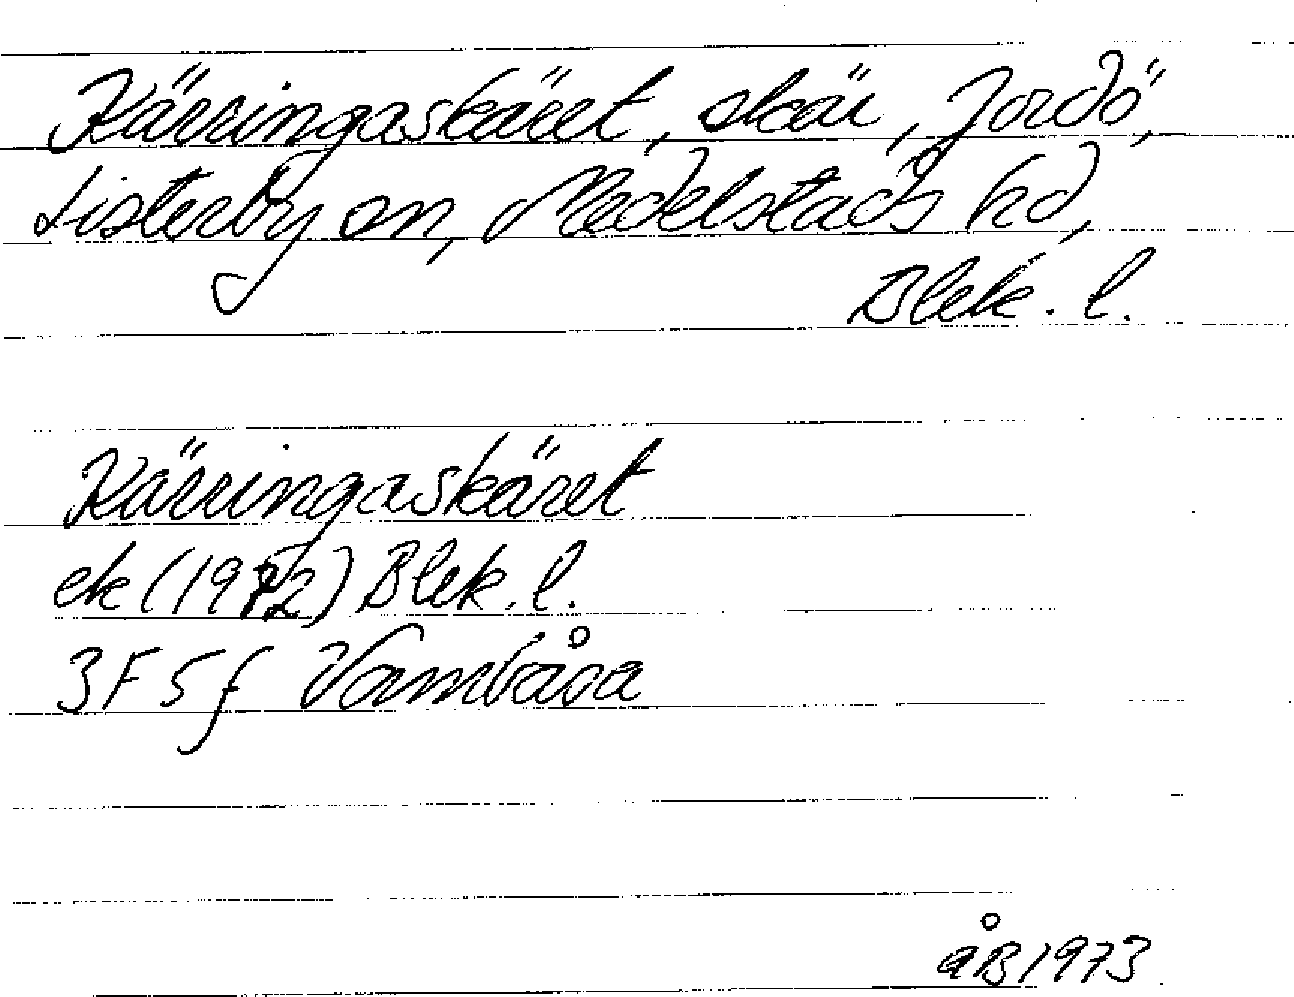 Kärringaskäret, skär, Jordö,
Listerby sn, Medelstads hd,
Blek. l.
Kärringaskäret
ek (1972) Blek. l.
3F 5f Vambåsa
åB 1973